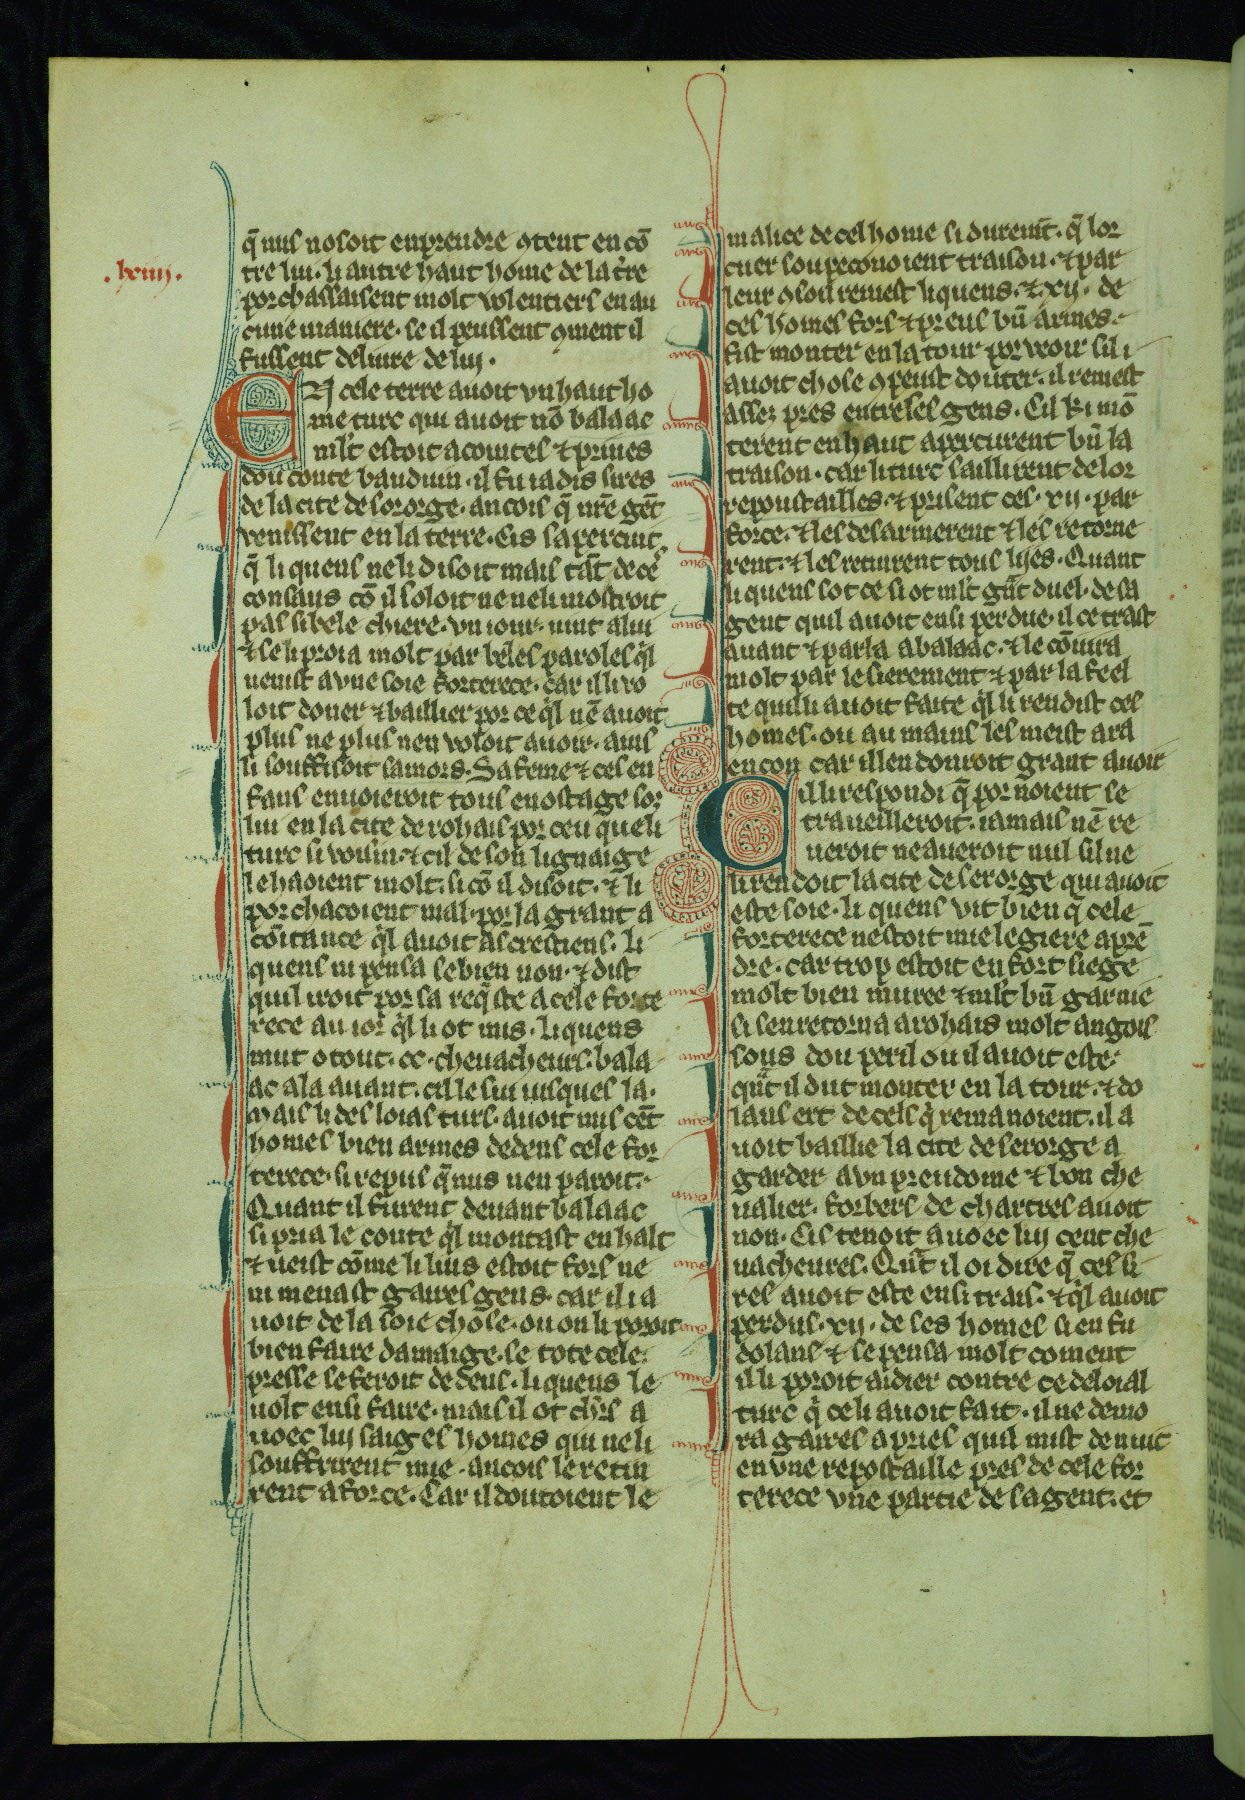 .lxiiij.
q̃ nus nosoit enprendre ꝯtent en cõ
tre lui. li autre haut home de la t̾re
porchassaissent molt volentiers en au
cune maniere. se il peussent ꝯment il
fussent deliure de luj.
EN cele terre auoit vn haut ho
me turc qui auoit nõ balaac
mlt̾ estoit acointes ⁊ priues
dou conte bauduin. il fu iadis sires
de la cite de sororge. ancois q̃ nr̃e gẽt
venissent en la terre. Cis sapercint
q̃ li quens neli disoit mais tãt de ces
consaus cõ il soloit ne neli mostroit
pas si bele chiere. vn iour. uint a lui
⁊ se li proia molt par beles paroles q̃l
uenist a vne soie forterece. car illi vo
loit doner ⁊ baillier por ce q̃l nẽ auoit
plus ne plus nen voloit auoir. ains
li souffisoit samors. Sa feme ⁊ ces en
fans enuoieroit tous en ostage sor
lui en la cite de rohais por ceu que li
turc si voisin. ⁊ cil de son lignaige
le haoient molt. si cõ il disoit. ⁊ li
porchacoient mal. por la grant a
cõitance q̃l auoit as crestiens. li
quens ni pensa se bien non. ⁊ dist
quil iroit por sa req̃ste a cele forte
rece au ior q̃l li ot mis. li quens
mut o tout .cc. cheuacheurs. bala
ac ala auant. cil le sui iusques la.
Mais li desloials turs. auoit mis cẽt
homes bien armes dedens cele for
terece. si repus q̃ nus nen paroit.
Quant il furent deuant balaac
si pria le conte q̃l montast en halt
⁊ ueist cõme li lius estoit fors ne
ni menast gaires gens. car il i a
uoit de la soie chose. ou on li poroit
bien faire damaige. se tote cele
presse se feroit dedens. li quens le
uolt ensi faire. mais il ot chrs̃ a
uoec luj saiges homes qui ne li
souffrirent mie. ancois le retin
rent a force. Car il doutoient le
malice de cel home si durem̃t. q̃ lor
cuer soupeconoient traison. ⁊ par
leur ꝯsoil remest li quens. ⁊ .xij. de
ces homes fors ⁊ preus bñ armes.
fist monter en la tour por veoir sil i
auoit chose ꝯ peust douter. il remest
asses pres entre les gens. Cil ki mõ
terent en haut apercurent bñ la
traison. car li turc saillirent de lor
repoustailles. ⁊ prisent ces .xij. par
force. ⁊ les desarmerent ⁊ les retorne
rent. ⁊ les retinrent tous lijes. Quant
li quens sot ce si ot mlt̾ gãt duel. de sa
gent quil auoit ensi perdue. il ce traist
auant ⁊ parla a balaac. ⁊ le cõiura
molt par le sierement ⁊ par la feel
te quil li auoit faite q̃l li rendist ces
homes. ou au mains les meist a ra
encon car il len donroit grant auoir
Cil li respondi q̃ por noient se
traueilleroit. iamais nẽ re
ueroit ne aueroit nul sil ne
li rendoit la cite de serorge qui auoit
este soie. li quens vit bien q̃ cele
forterece nestoit mie legiere a prẽ
dre. car trop estoit en fort siege
molt bien muree ⁊ mlt̾ bñ garnie
si sen retorna a rohais molt angois
sous dou peril ou il auoit este.
quãt il dut monter en la tour. ⁊ do
lans ert de cels q̃ remanoient. il a
uoit baillie la cite de serorge a
garder a vn preudome ⁊ bon che
ualier. forbers de chartres auoit
non. Cis tenoit auoec luj cent che
uacheures. Quãt il oi dire q̃ ces si
res auoit este ensi trais. ⁊ q̃l auoit
perdus .xij. de ses homes si en fu
dolans ⁊ se pensa molt coment
il li poroit aidier contre ce deloial
turc q̃ ce li auoit fait. il ne demo
ra gaires apries quil mist de nuit
en vne repostaille pres de cele for
terece vne partie de sa gent. et